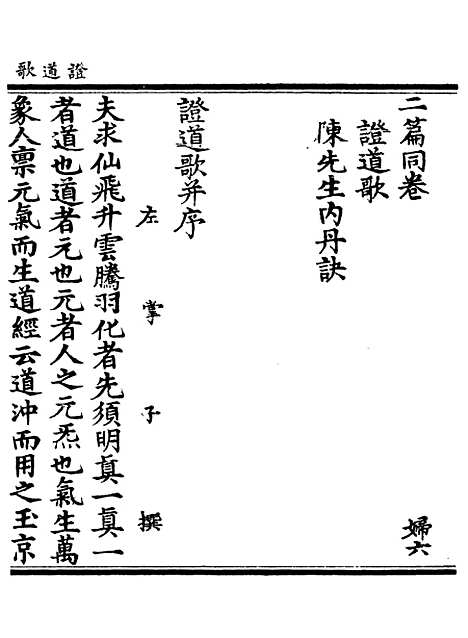 證道歌
二篇同卷 婦六
證道歌
陳先生内丹訣
證道歌并序
左掌子撰
夫求仙飛升雲騰羽化者先須明真一真一
者道也道者元也元者人之元炁也氣生萬
象人禀元氣而生道經云道沖而用之玉京